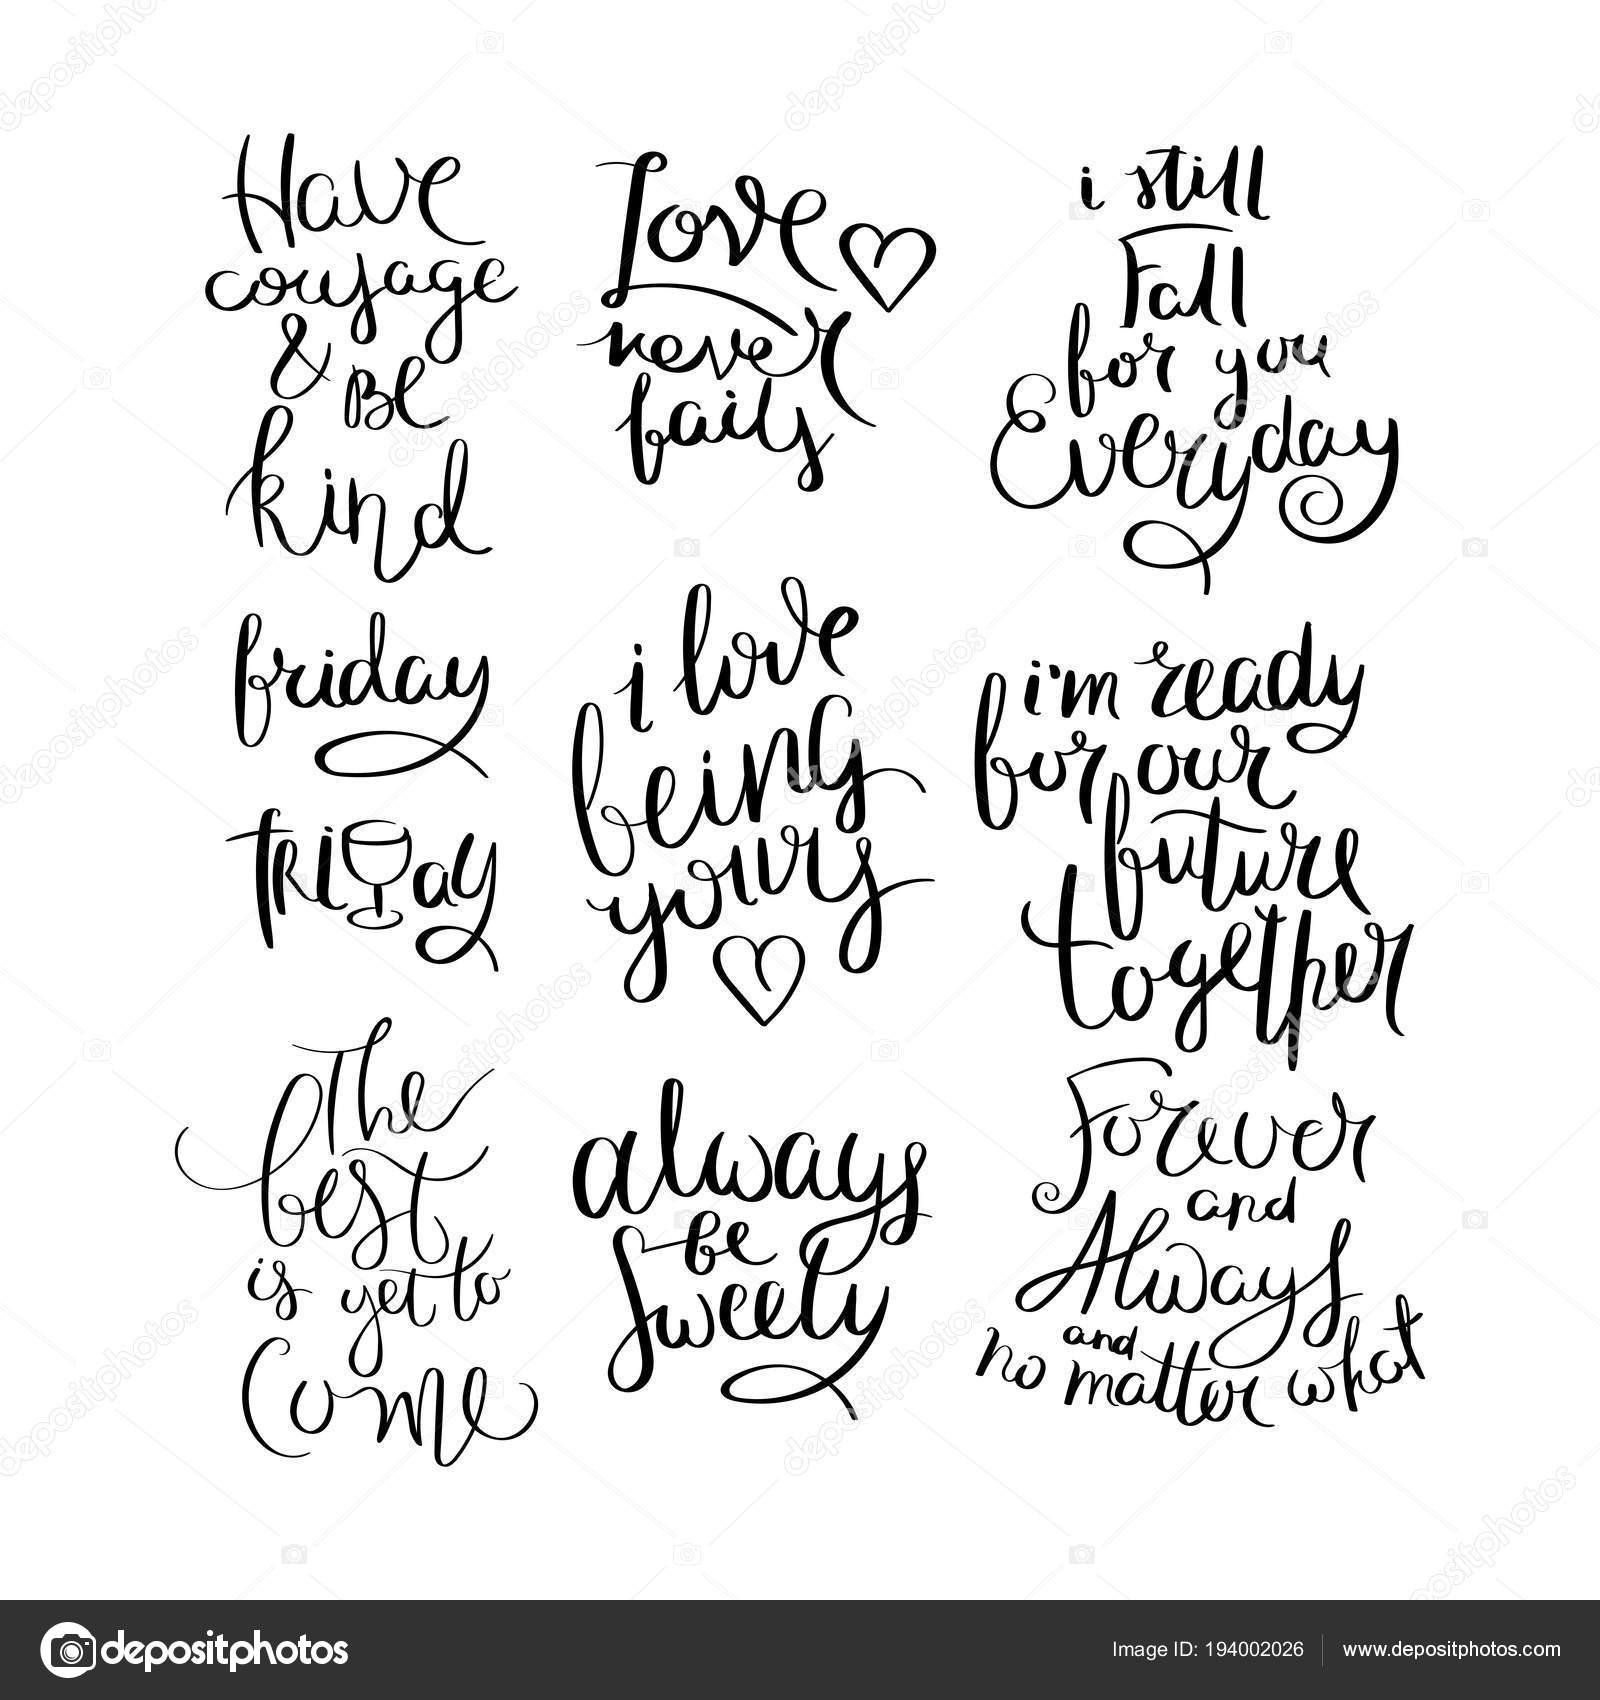 Have
courage
& Be
kind
Love
never
fails
i still
Fall
for you
Everyday
friday
friday
i love
being
yours
i'm ready
for our
future
together
The
best
is yet to
Come
always
be
Sweety
Forever
and
Always
and
no matter what
depositphotos
Image ID: 194002026
www.depositphotos.com